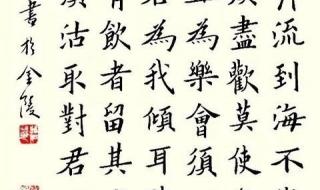 流到海不
須盡歡莫使
且為樂會須
君為我傾耳
有飲者留其
須沽取對君
書於金陵